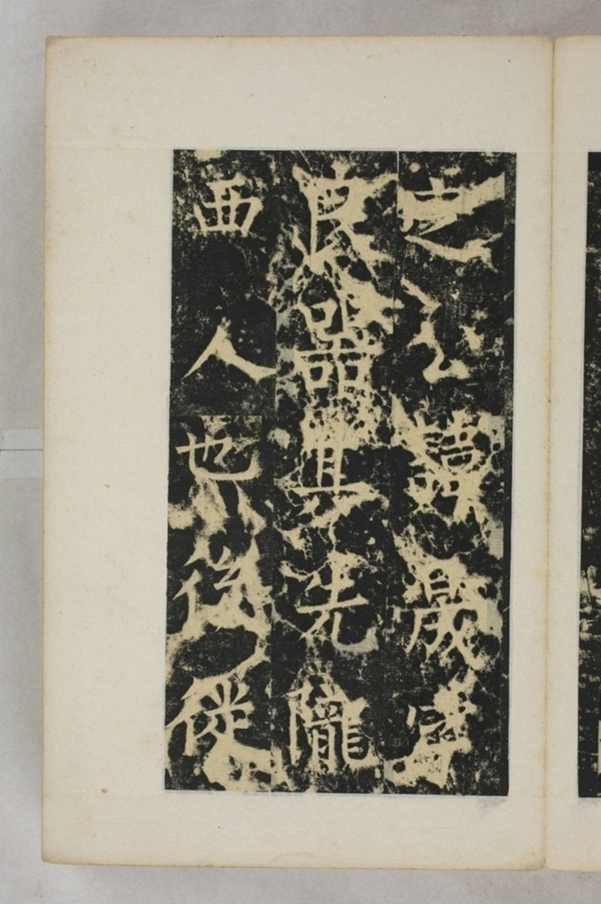 之公諱晟字
良器其先隴
西人也後徙